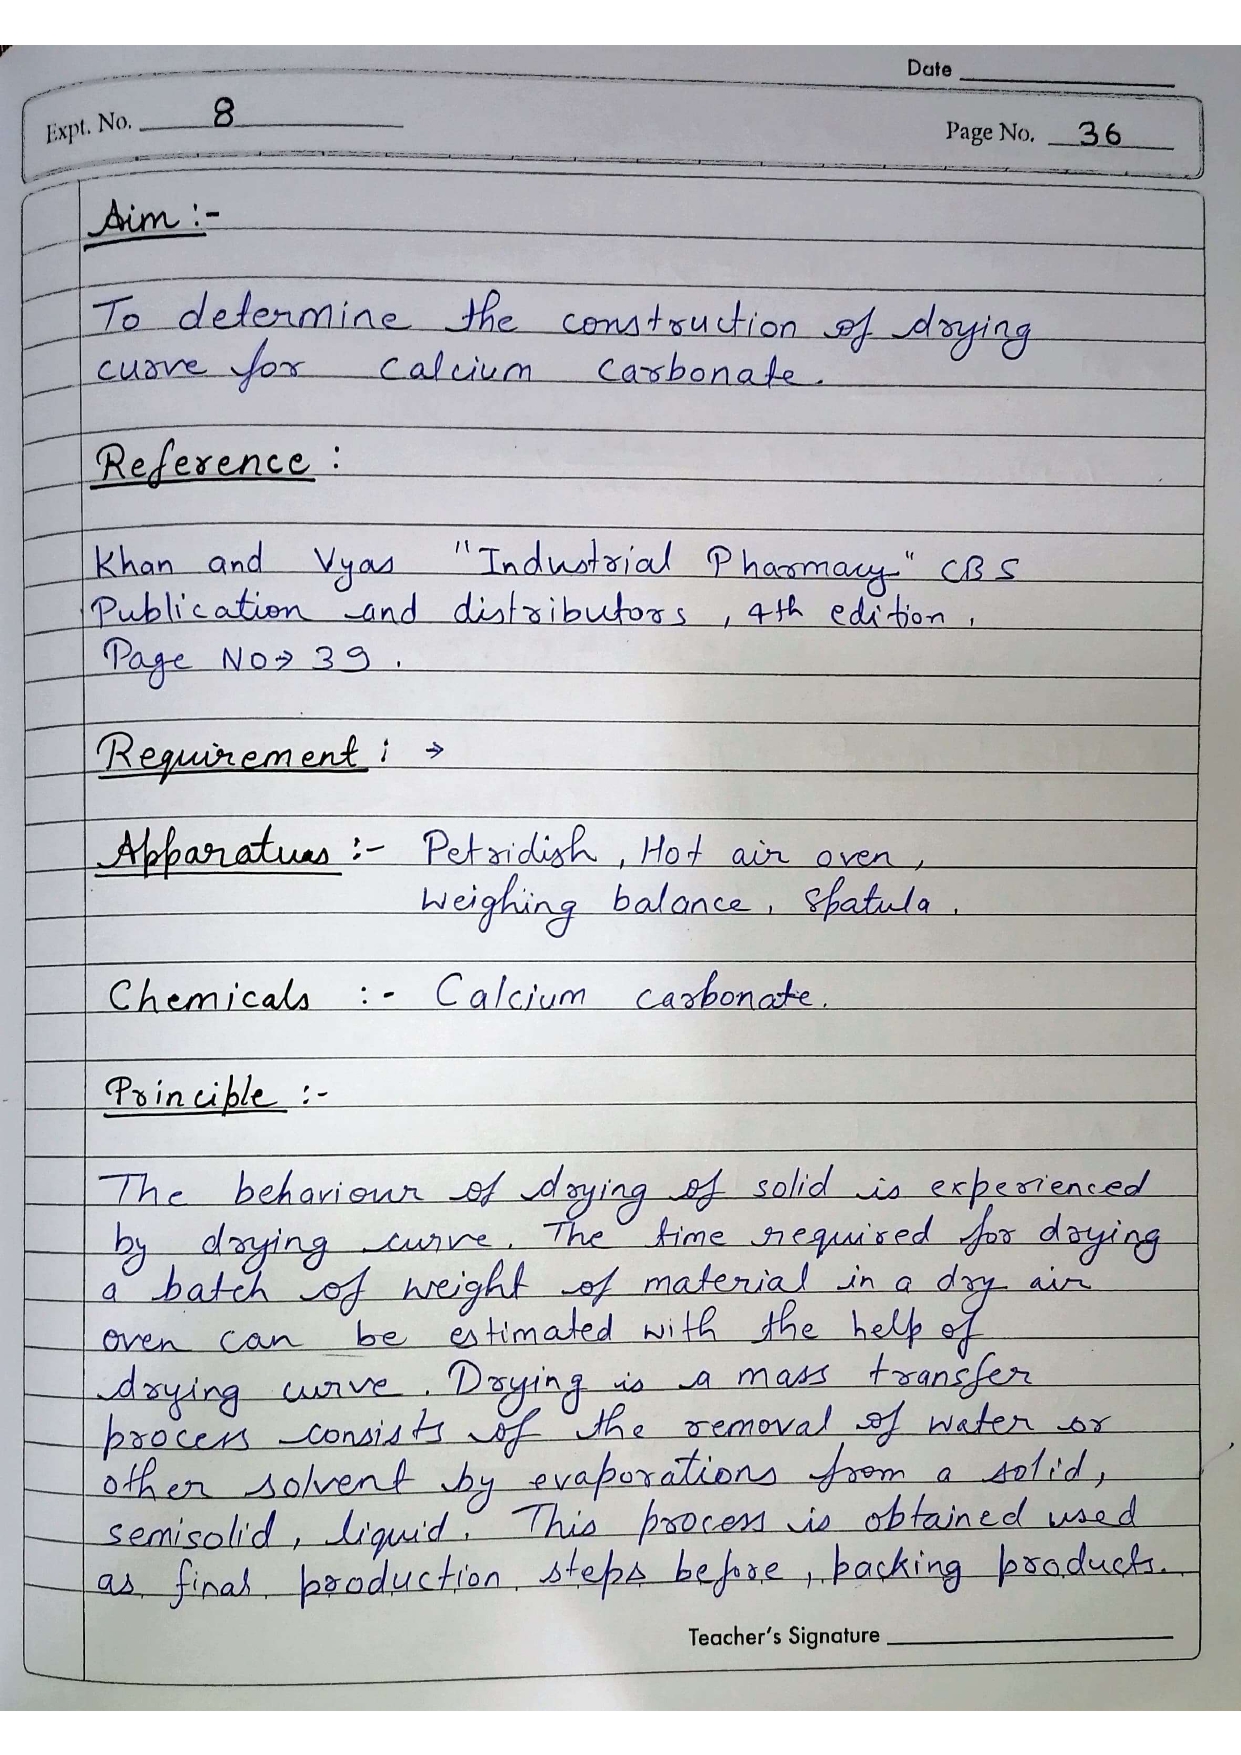 Date
Expt. No. 8
Page No. 36
Aim :-
To determine the construction of drying
curve for Calcium Carbonate.
Reference :
Khan and Vyas "Industrial Pharmacy" CBS
Publication and distributors, 4th edition,
Page No → 39.
Requirement : →
Apparatus :- Petridish, Hot air oven,
Weighing balance, Spatula.
Chemicals :- Calcium carbonate.
Principle :-
The behaviour of drying of solid is experienced
by drying curve. The time required for drying
a batch of weight of material in a dry air
oven can be estimated with the help of
drying curve. Drying is a mass transfer
process consists of the removal of water or
other solvent by evaporations from a solid,
semisolid, liquid. This process is obtained used
as final production steps before, packing products.
Teacher's Signature